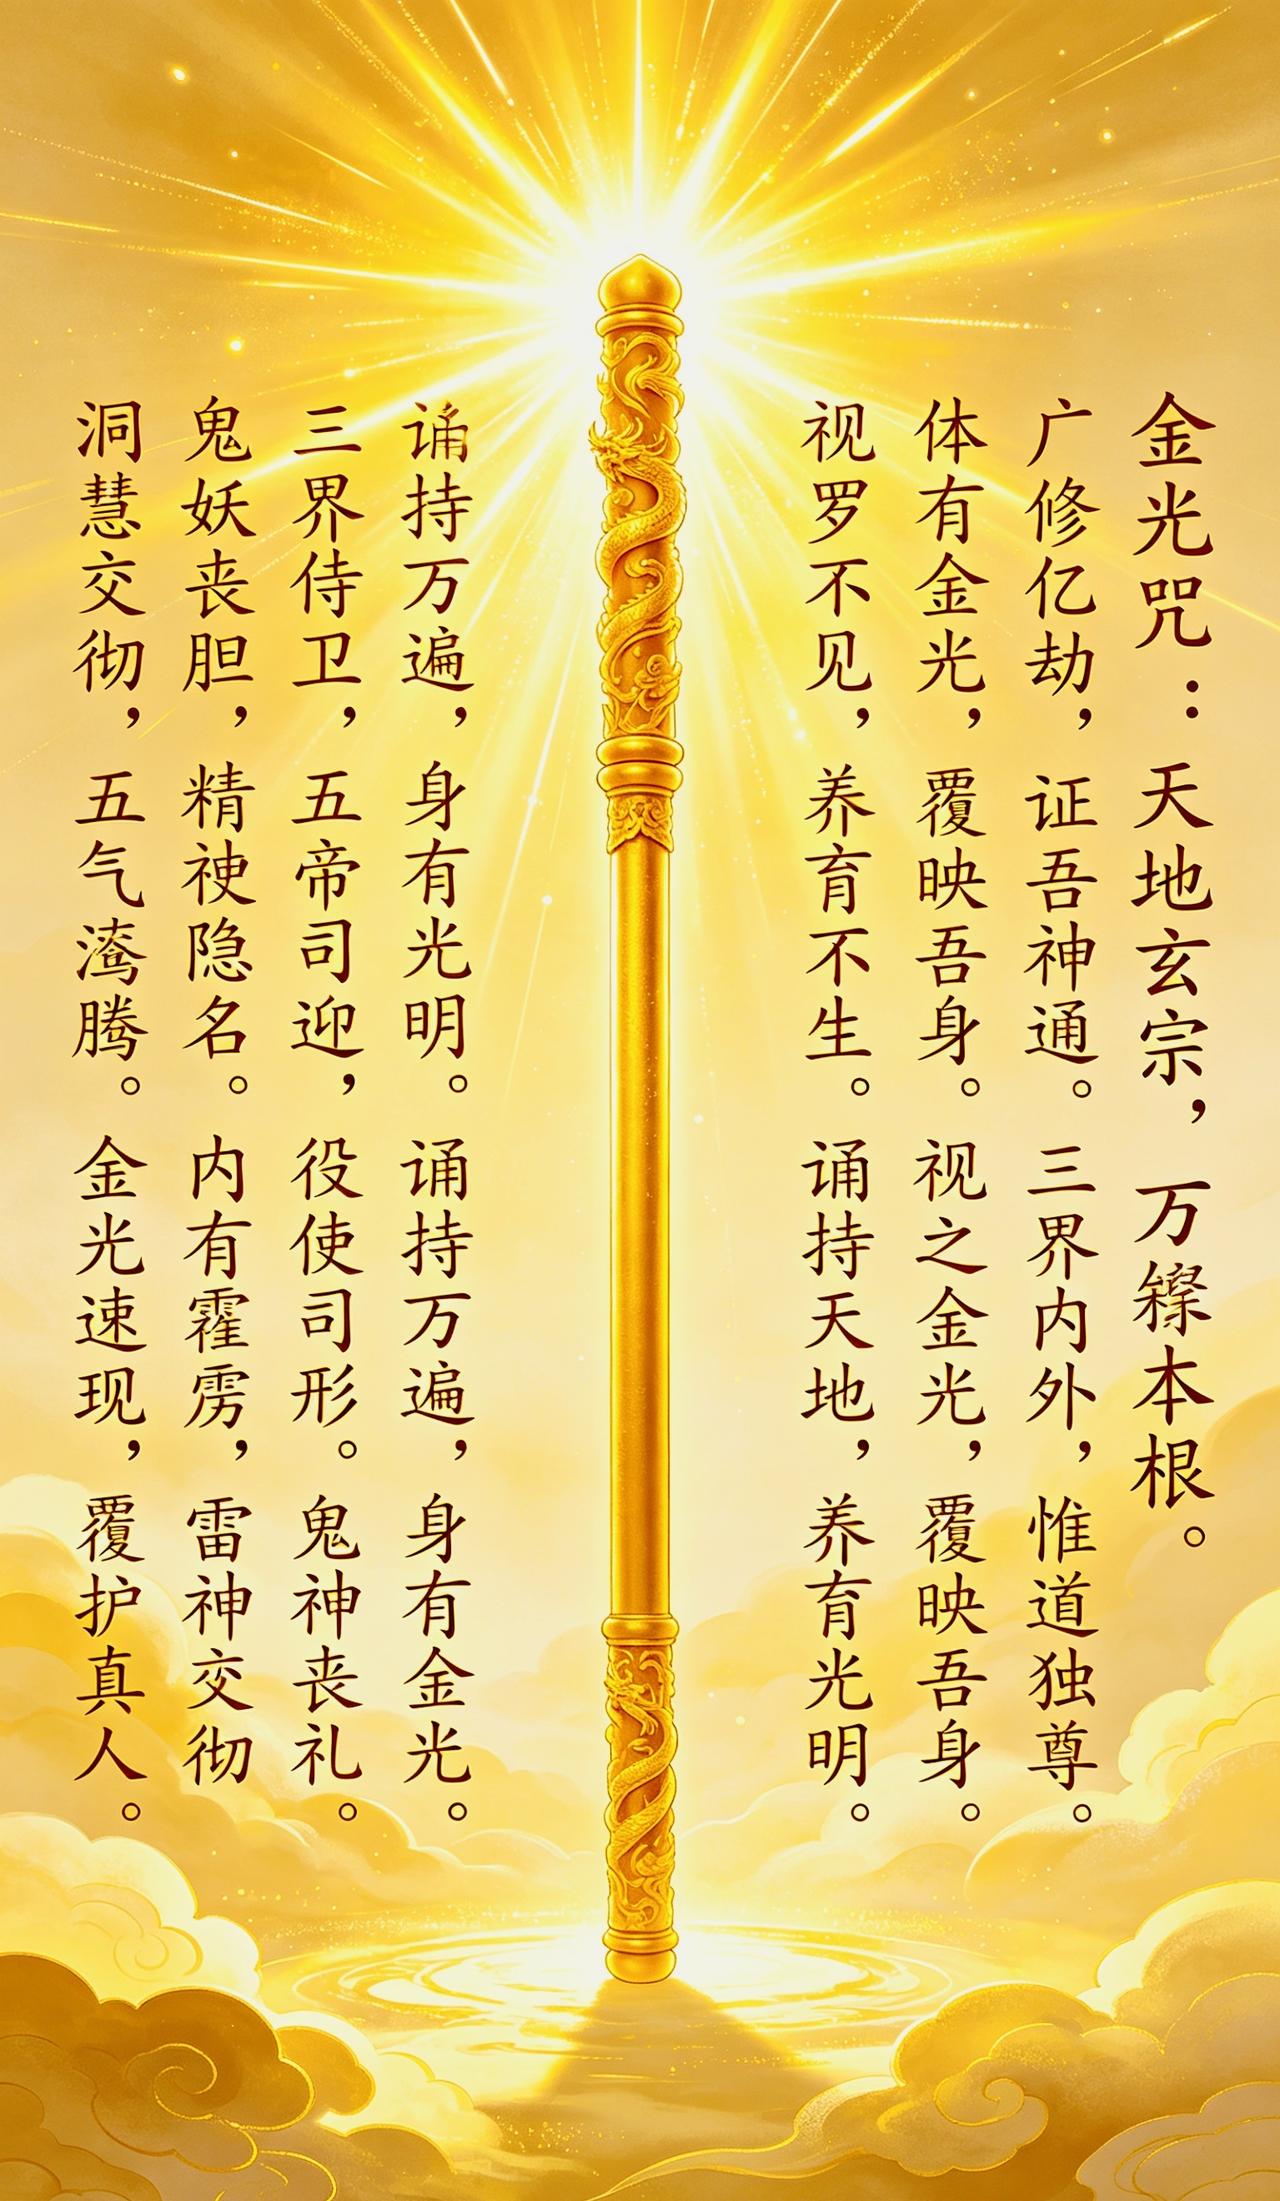 金光咒：天地玄宗，万本根。
广修亿劫，证吾神通。三界内外，惟道独尊。
体有金光，覆映吾身。视之金光，覆映吾身。
视罗不见，养育不生。诵持天地，养育光明。
诵持万遍，身有光明。诵持万遍，身有金光。
三界侍卫，五帝司迎，役使司形。鬼神丧礼。
鬼妖丧胆，精隐名。内有霍雳，雷神交彻
洞慧交彻，五气腾。金光速现，覆护真人。